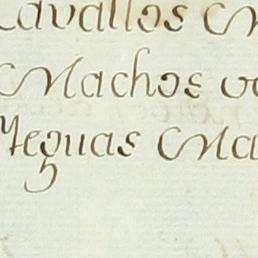 Cavallos
Machos
Yeguas Ma